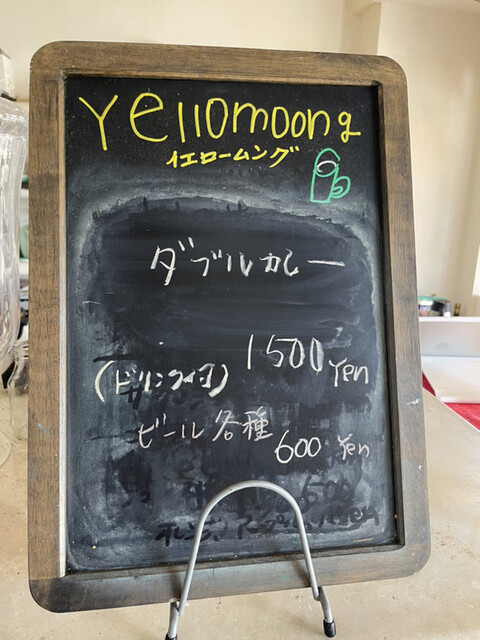 Yellomoong
イエロームング
ダブルカレー
1500 Yen
(ドリンク付)
ビール各種
600 Yen